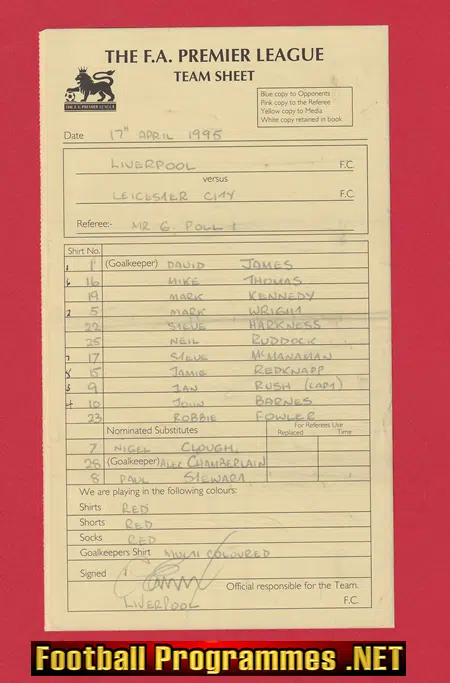 THE F.A. PREMIER LEAGUE
TEAM SHEET
THE F.A. PREMIER LEAGUE
Blue copy to Opponents
Pink copy to the Referee
Yellow copy to Media
White copy retained in book
Date 17th APRIL 1995
LIVERPOOL F.C.
versus
LEICESTER CITY F.C.
Referee:- MR G. POLL
Shirt No.
1 (Goalkeeper) DAVID JAMES
16 MIKE THOMAS
19 MARK KENNEDY
5 MARK WRIGHT
22 STEVE HARKNESS
25 NEIL RUDDOCK
17 STEVE McMANAMAN
15 JAMIE REDKNAPP
9 IAN RUSH (CAPT)
10 JOHN BARNES
23 ROBBIE FOWLER
Nominated Substitutes For Referees Use
Replaced Time
7 NIGEL CLOUGH
28 (Goalkeeper) ALEC CHAMBERLAIN
8 PAUL STEWART
We are playing in the following colours:
Shirts RED
Shorts RED
Socks RED
Goalkeepers Shirt MULTI COLOURED
Signed
Official responsible for the Team.
LIVERPOOL F.C.
Football Programmes .NET